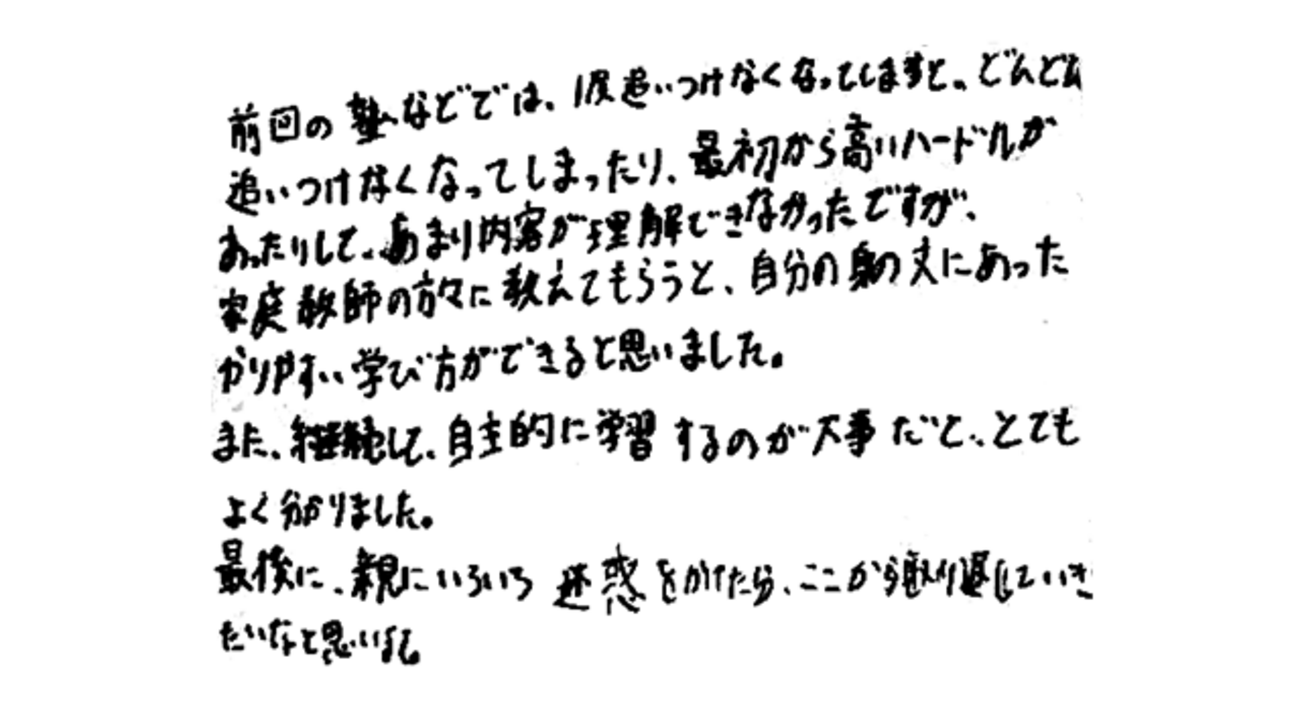 前回の塾などでは、1度追いつけなくなってしますと、どんどん
追いつけなくなってしまったり、最初から高いハードルが
あったりして、あまり内容が理解できなかったですが、
家庭教師の方々に教えてもらうと、自分の身の丈にあった
かりやすい学び方ができると思いました。
また、継続して、自主的に学習するのが大事だと、とても
よく分かりました。
最後に、親にいろいろ迷惑をかけた分、ここから取り返していき
たいなと思います。